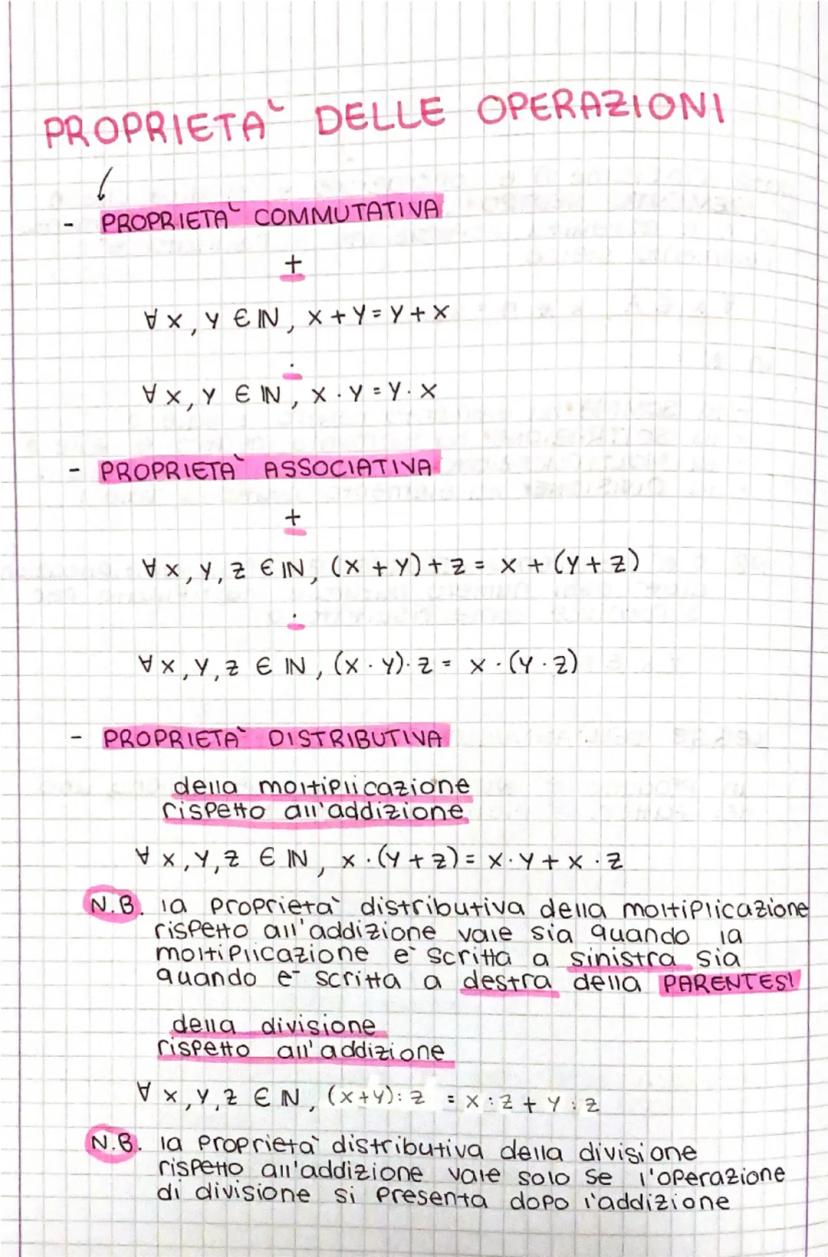 PROPRIETA' DELLE OPERAZIONI
- PROPRIETA' COMMUTATIVA
+
∀ x, y ∈ ℕ, x + y = y + x
·
∀ x, y ∈ ℕ, x · y = y · x
- PROPRIETA' ASSOCIATIVA
+
∀ x, y, z ∈ ℕ, (x + y) + z = x + (y + z)
·
∀ x, y, z ∈ ℕ, (x · y) · z = x · (y · z)
- PROPRIETA' DISTRIBUTIVA
della moltiplicazione
rispetto all'addizione
∀ x, y, z ∈ ℕ, x · (y + z) = x · y + x · z
N.B. la proprietà distributiva della moltiplicazione
rispetto all'addizione vale sia quando la
moltiplicazione è scritta a sinistra sia
quando è scritta a destra della PARENTESI
della divisione
rispetto all'addizione
∀ x, y, z ∈ ℕ, (x+y) : z = x : z + y : z
N.B. la proprietà distributiva della divisione
rispetto all'addizione vale solo se l'operazione
di divisione si presenta dopo l'addizione